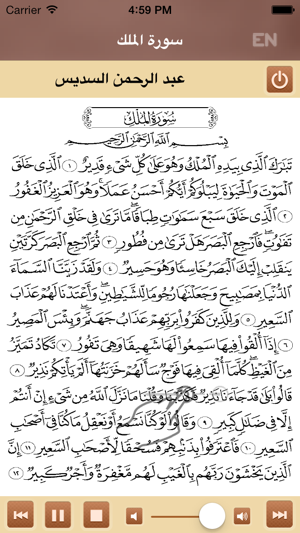 Carrier 4:59 PM
سورة الملك EN
عبد الرحمن السديس
سُورَةُ المُلْكِ
بِسْمِ اللَّهِ الرَّحْمَٰنِ الرَّحِيمِ
تَبَٰرَكَ ٱلَّذِى بِيَدِهِ ٱلْمُلْكُ وَهُوَ عَلَىٰ كُلِّ شَىْءٍ قَدِيرٌ ١ ٱلَّذِى خَلَقَ
ٱلْمَوْتَ وَٱلْحَيَوٰةَ لِيَبْلُوَكُمْ أَيُّكُمْ أَحْسَنُ عَمَلًا وَهُوَ ٱلْعَزِيزُ ٱلْغَفُورُ
٢ ٱلَّذِى خَلَقَ سَبْعَ سَمَٰوَٰتٍ طِبَاقًا مَّا تَرَىٰ فِى خَلْقِ ٱلرَّحْمَٰنِ مِن
تَفَٰوُتٍ فَٱرْجِعِ ٱلْبَصَرَ هَلْ تَرَىٰ مِن فُطُورٍ ٣ ثُمَّ ٱرْجِعِ ٱلْبَصَرَ كَرَّتَيْنِ
يَنقَلِبْ إِلَيْكَ ٱلْبَصَرُ خَاسِئًا وَهُوَ حَسِيرٌ ٤ وَلَقَدْ زَيَّنَّا ٱلسَّمَآءَ
ٱلدُّنْيَا بِمَصَٰبِيحَ وَجَعَلْنَٰهَا رُجُومًا لِّلشَّيَٰطِينِ وَأَعْتَدْنَا لَهُمْ عَذَابَ
ٱلسَّعِيرِ ٥ وَلِلَّذِينَ كَفَرُوا۟ بِرَبِّهِمْ عَذَابُ جَهَنَّمَ وَبِئْسَ ٱلْمَصِيرُ
٦ إِذَآ أُلْقُوا۟ فِيهَا سَمِعُوا۟ لَهَا شَهِيقًا وَهِىَ تَفُورُ ٧ تَكَادُ تَمَيَّزُ
مِنَ ٱلْغَيْظِ كُلَّمَآ أُلْقِىَ فِيهَا فَوْجٌ سَأَلَهُمْ خَزَنَتُهَآ أَلَمْ يَأْتِكُمْ نَذِيرٌ ٨
قَالُوا۟ بَلَىٰ قَدْ جَآءَنَا نَذِيرٌ فَكَذَّبْنَا وَقُلْنَا مَا نَزَّلَ ٱللَّهُ مِن شَىْءٍ إِنْ أَنتُمْ
إِلَّا فِى ضَلَٰلٍ كَبِيرٍ ٩ وَقَالُوا۟ لَوْ كُنَّا نَسْمَعُ أَوْ نَعْقِلُ مَا كُنَّا فِىٓ أَصْحَٰبِ
ٱلسَّعِيرِ ١٠ فَٱعْتَرَفُوا۟ بِذَنۢبِهِمْ فَسُحْقًا لِّأَصْحَٰبِ ٱلسَّعِيرِ ١١ إِنَّ
ٱلَّذِينَ يَخْشَوْنَ رَبَّهُم بِٱلْغَيْبِ لَهُم مَّغْفِرَةٌ وَأَجْرٌ كَبِيرٌ ١٢